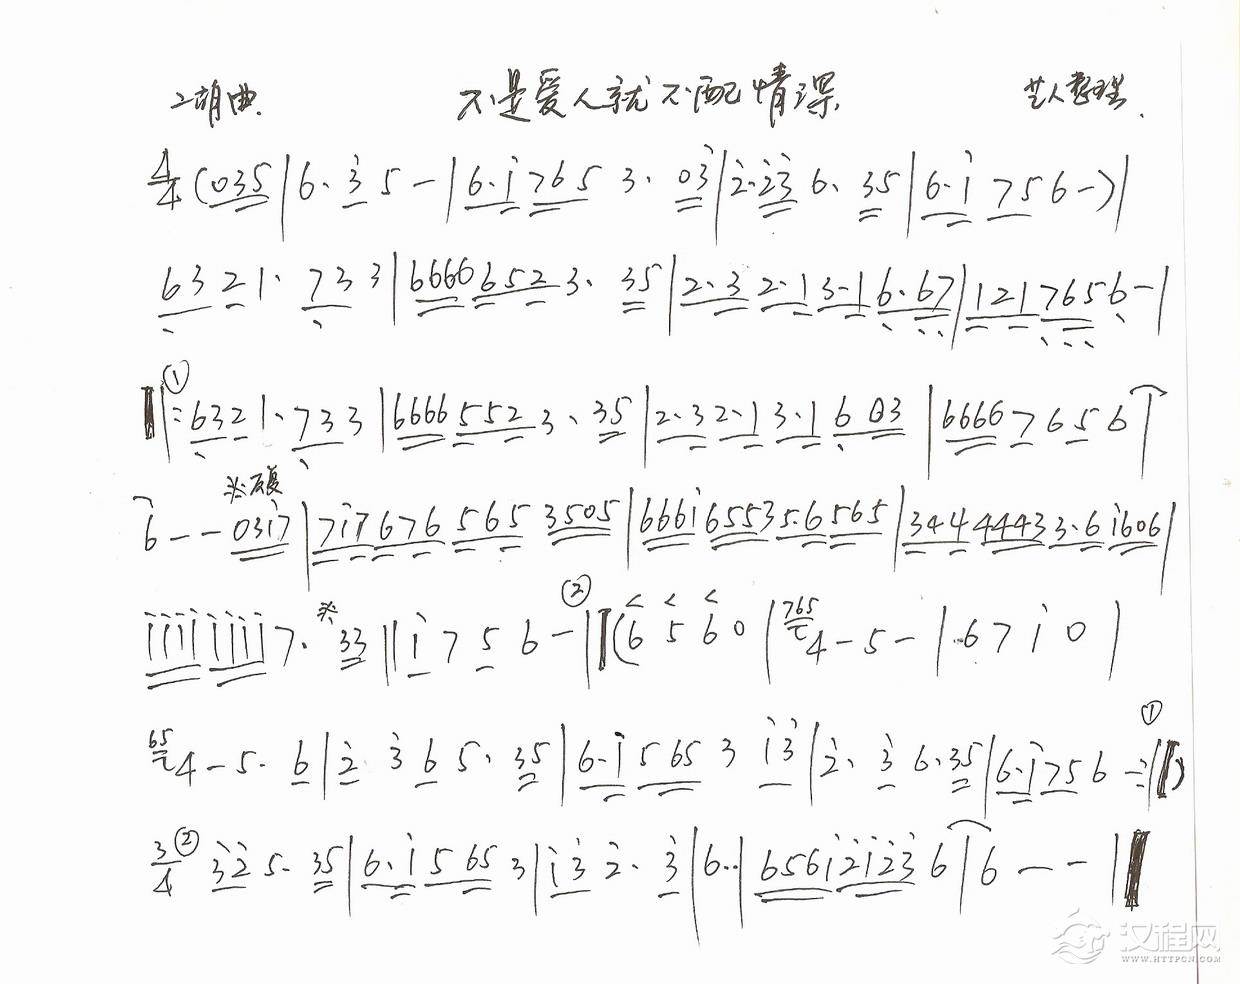 二胡曲 不是爱人就不配情深 艺人整理
4/4 (035|6· 3 5 -|6·1 765 3· 03|2·23 6· 35|6·1 75 6 -)|
6321· 733|6666 652 3· 35|2·3 2·1 3·1 6·67|121 765 6 -|
① ‖:6321· 733|6666 552 3· 35|2·3 2·1 3·1 6 03|6666 7 6 5 6|
※反复
6 - - 0317|717 676 565 3505|6661 6553 5·6 565|344 4443 3·6 1606|
1111 1111 7· ※ 33‖1 7 5 6 - ②‖(6 5 6 0|765 4 - 5 -|·6 7 1 0|
65 4 - 5· 6|2· 3 6 5· 35|6·1 5 65 3 13|2· 3 6·35|6·1 75 6 - ①:‖)
3/4 ② 32 5· 35|6·1 5 65 3|13 2· 3|6··|6561 2123 6|6 - -‖
汉程网
WWW.HTTPCN.COM